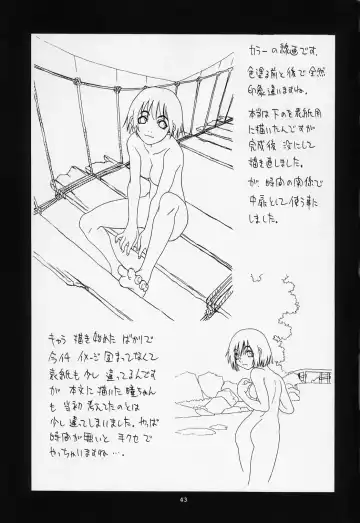 カラーの線画です。
色塗る前と後で全然
印象違いますね。
本当は下のを表紙用
に描いたんですが
完成後 没にして
描き直しました。
が、時間の関係で
中扉として使う事に
しました。
キャラ 描き始めた ばかりで
今イチ イメージ 固まってなくて
表紙も 少し 違ってるんです
が 本文に 描いた 瞳ちゃん
も 当初 考えてたのとは
少し 違ってしまいました。やっぱ
時間が無いと テクセで
やっちゃいますね…。
43